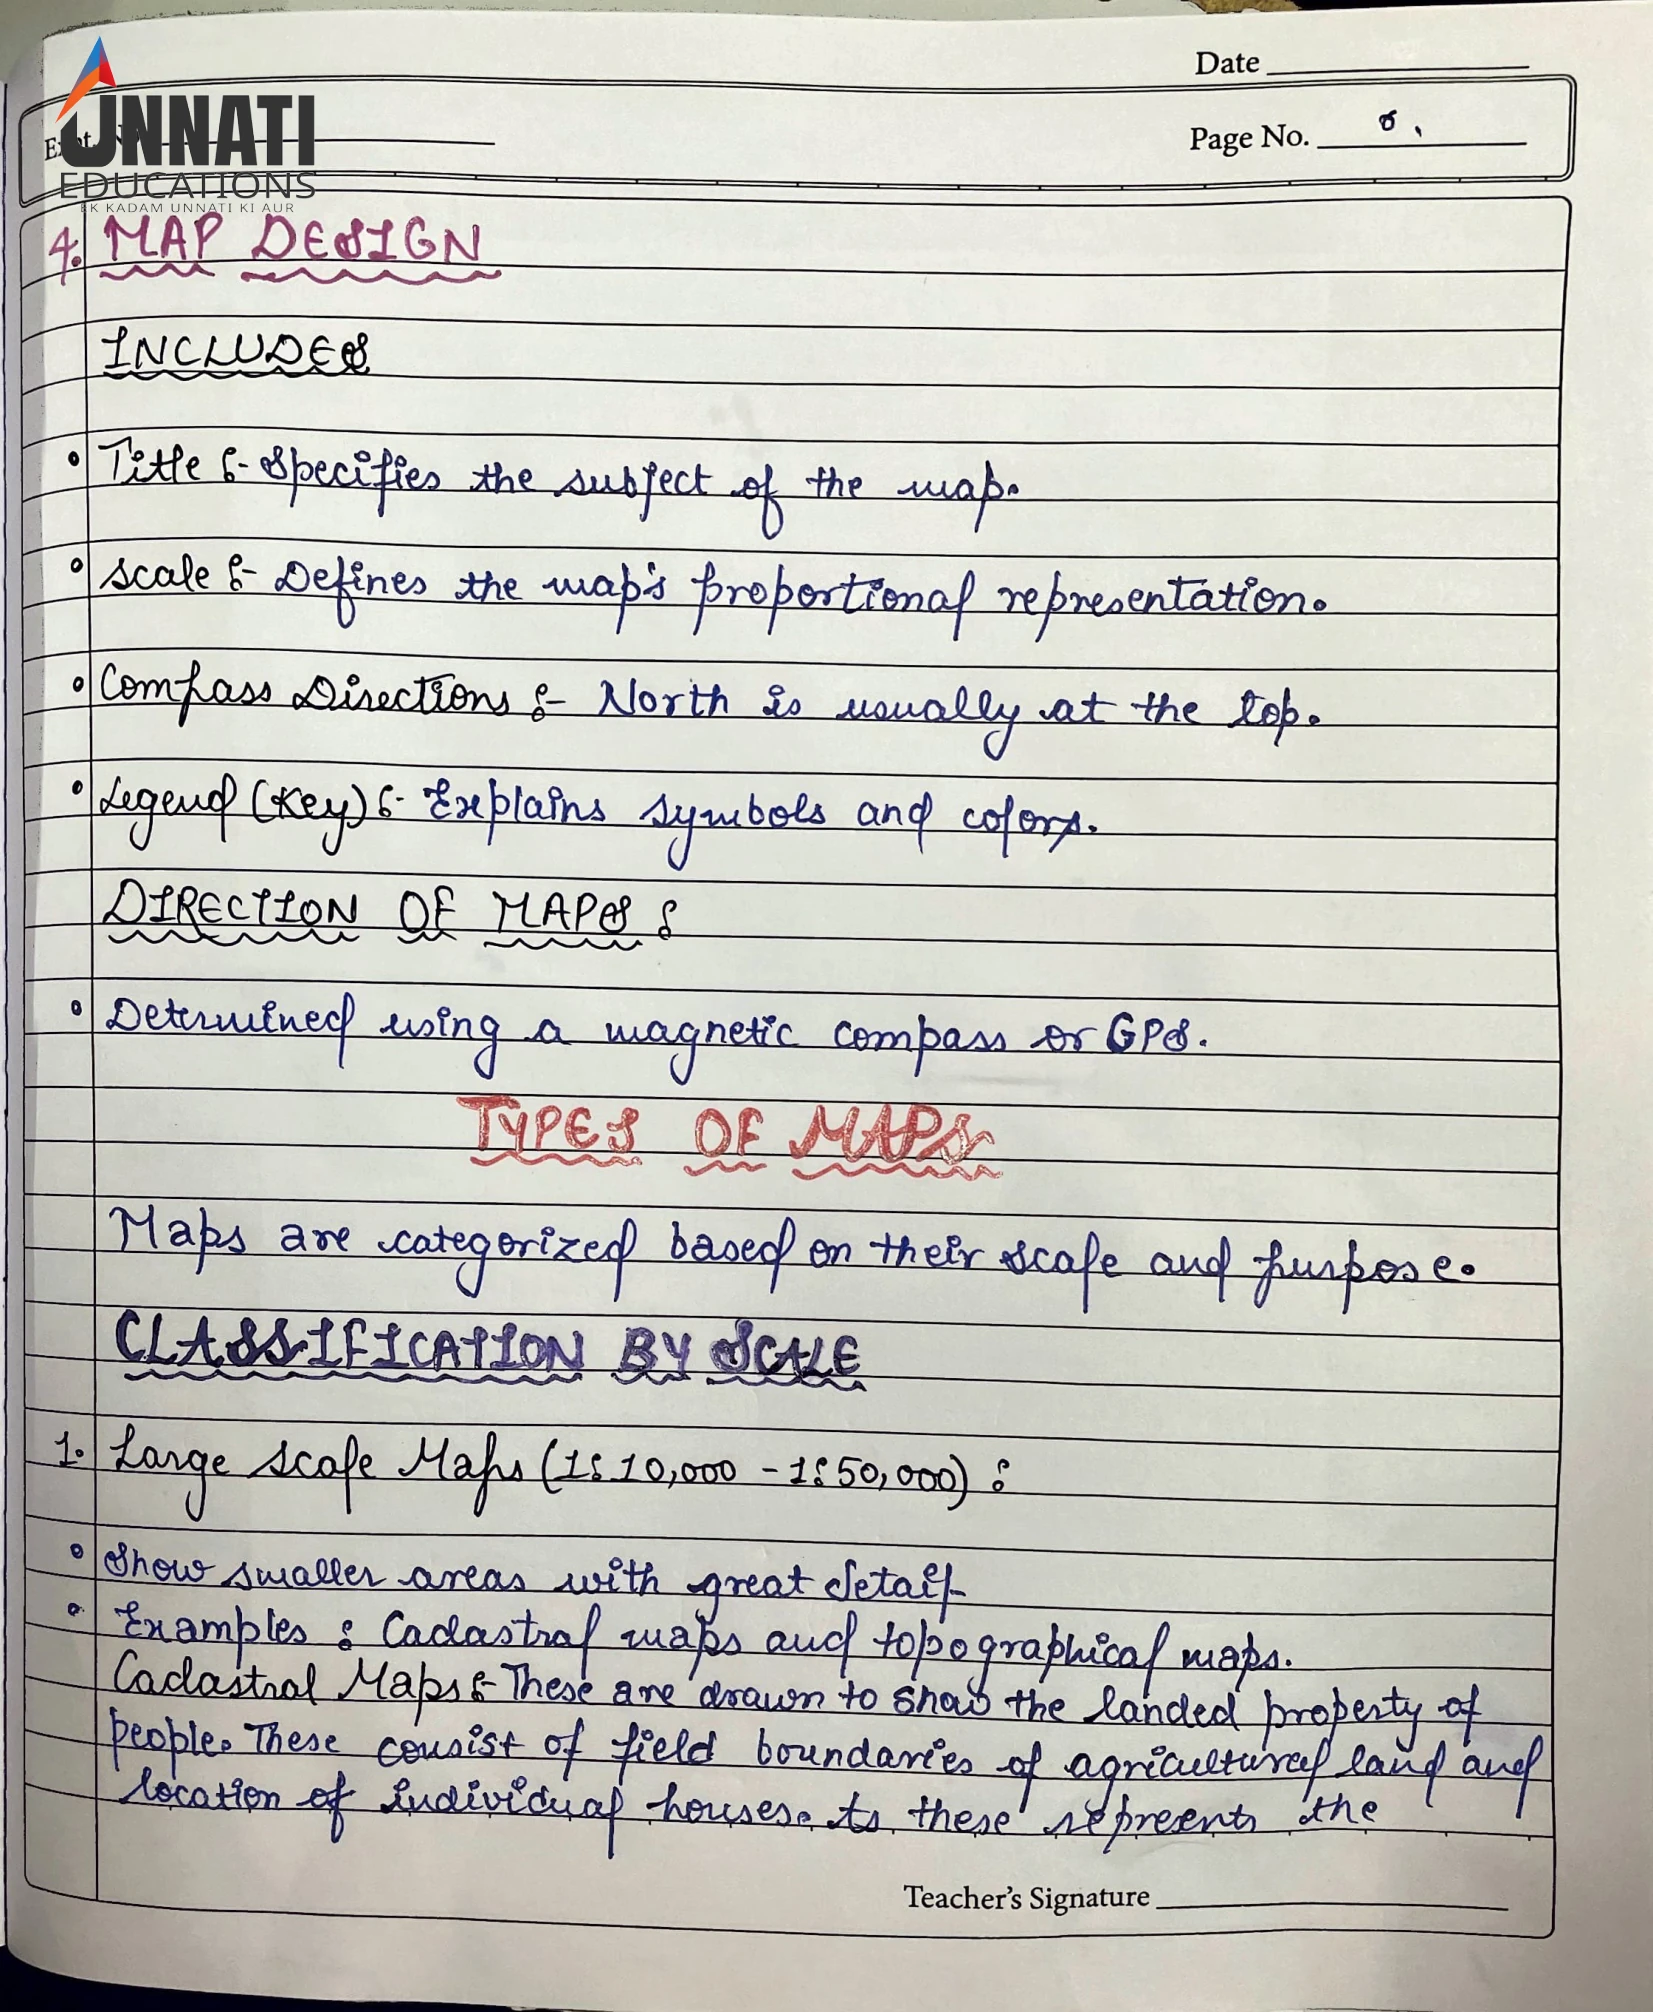 Date
UNNATI
EDUCATIONS
EK KADAM UNNATI KI AUR
Page No. 8.
4. MAP DESIGN
INCLUDES
• Title :- Specifies the subject of the map.
• Scale :- Defines the map's proportional representation.
• Compass Directions :- North is usually at the top.
• Legend (Key) :- Explains symbols and colors.
DIRECTION OF MAPS :
• Determined using a magnetic compass or GPS.
TYPES OF MAPS
Maps are categorized based on their scale and purpose.
CLASSIFICATION BY SCALE
1. Large Scale Maps (1:10,000 - 1:50,000) :
• Show smaller areas with great detail
• Examples : Cadastral maps and topographical maps.
Cadastral Maps :- These are drawn to show the landed property of
people. These consist of field boundaries of agricultural land and
location of individual houses. As these represents the
Teacher's Signature